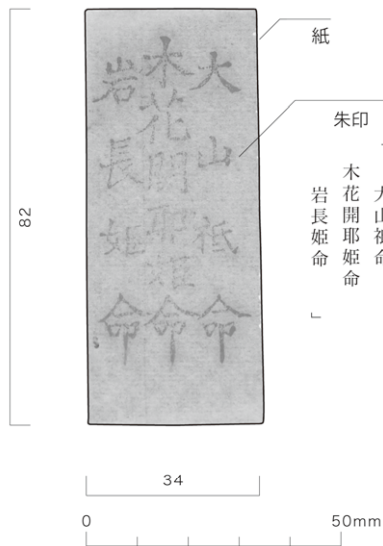 大山祇命
木花開耶姫命
岩長姫命
紙
朱印
大山祇命
木花開耶姫命
岩長姫命」
82
34
0 50mm